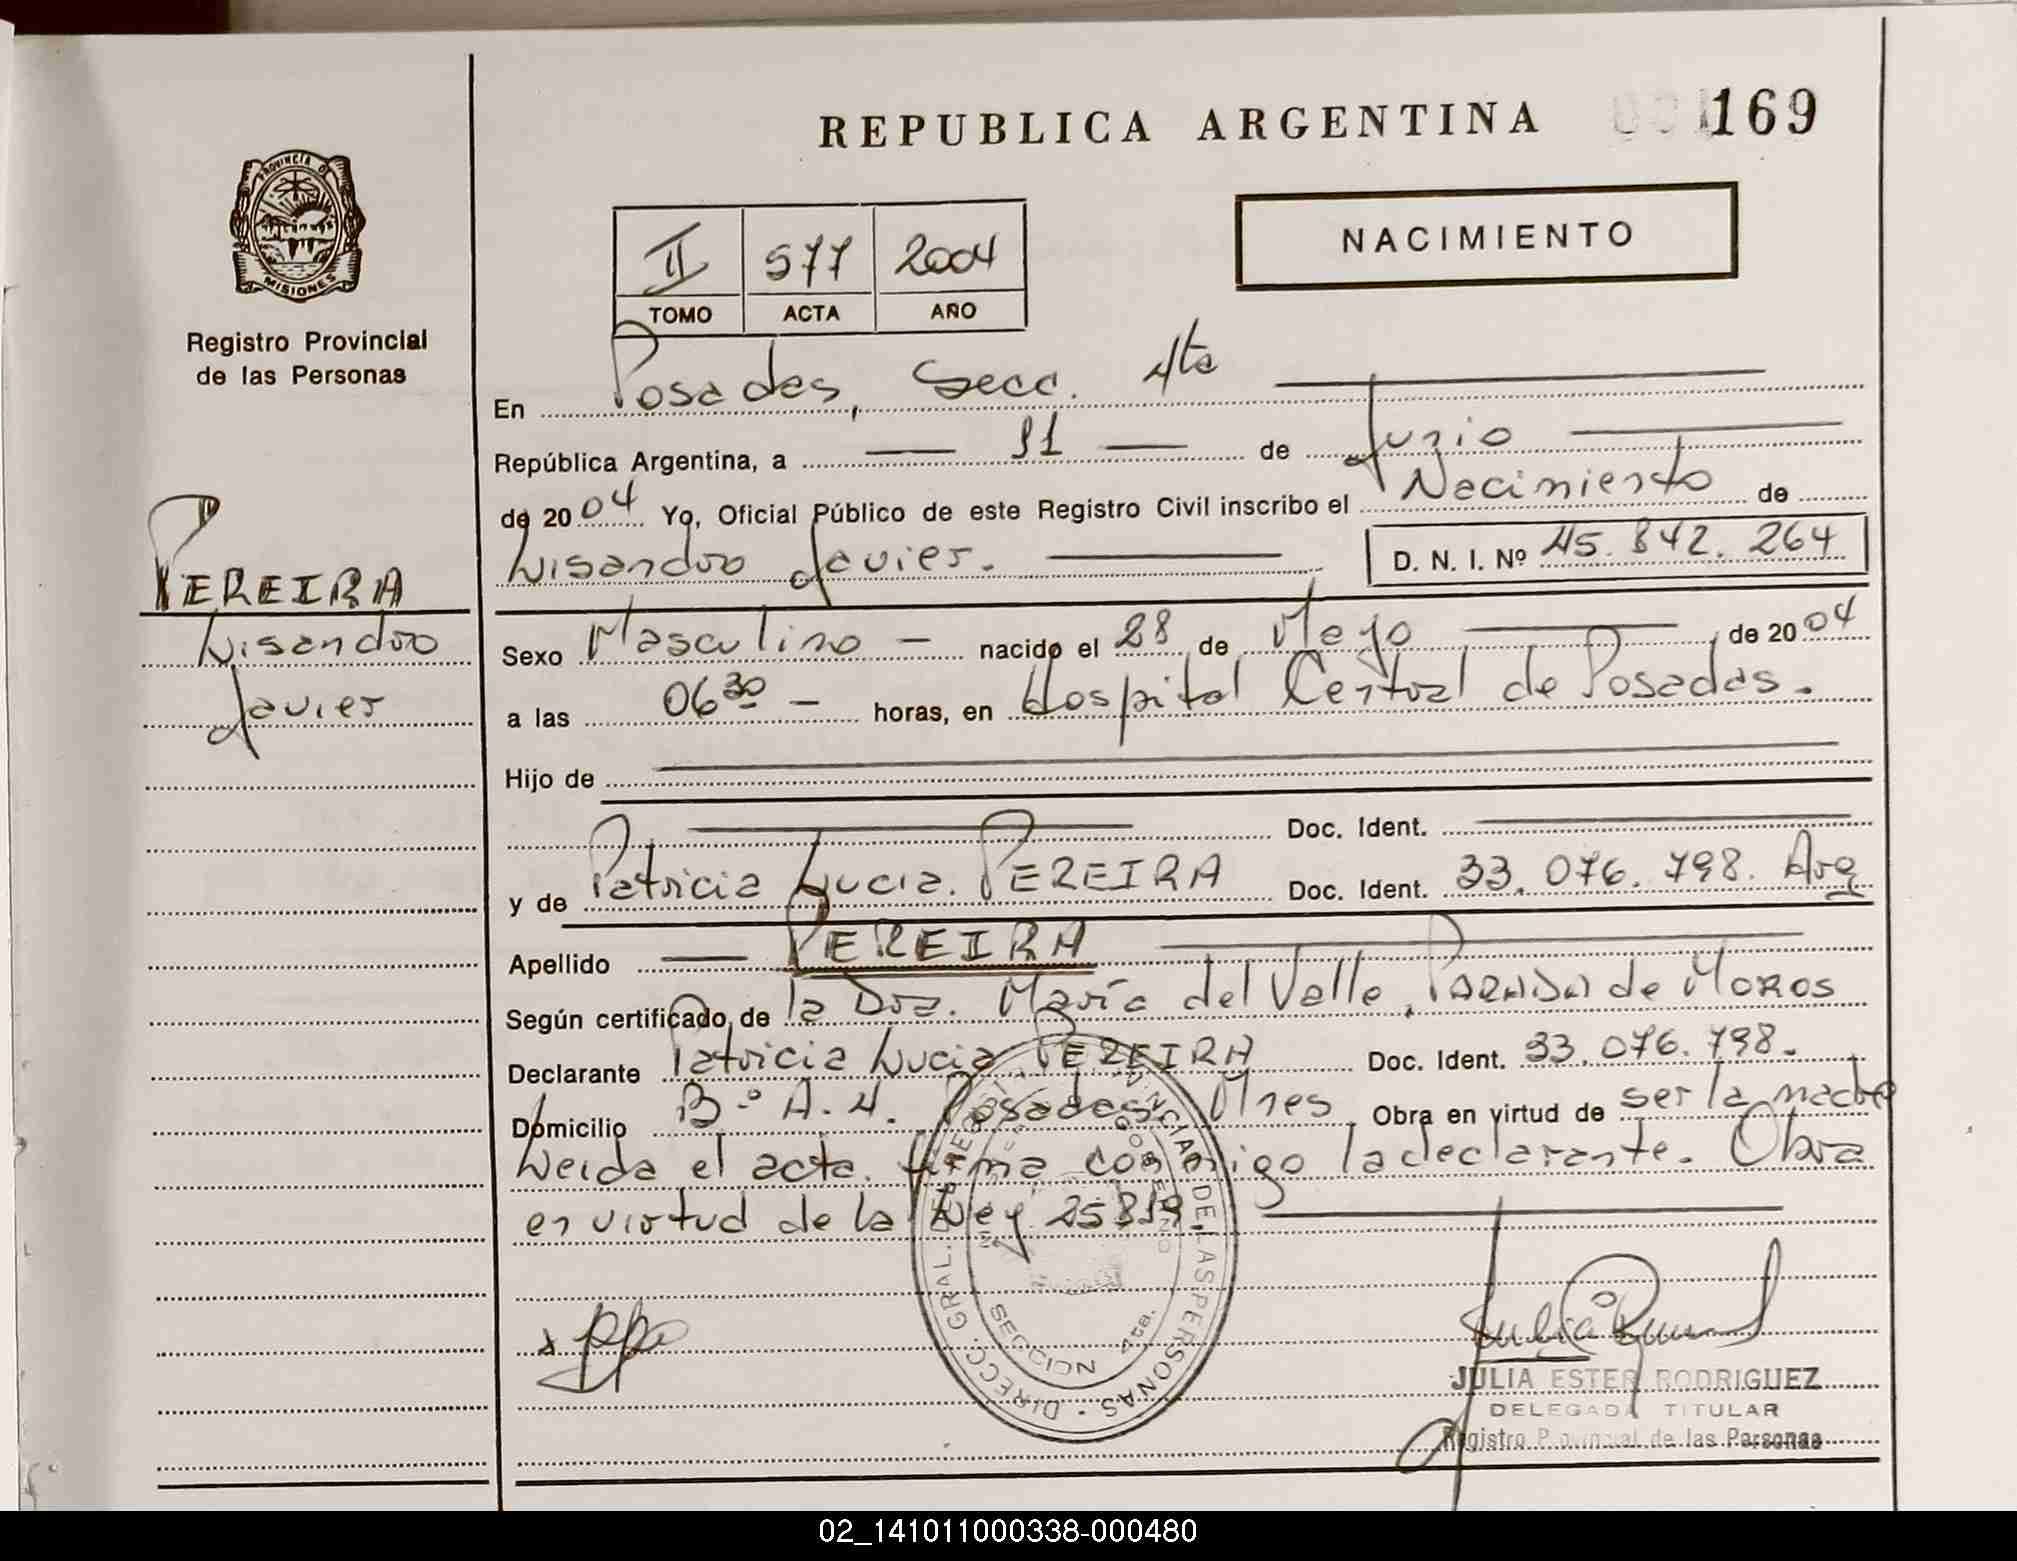 REPUBLICA ARGENTINA 169
PROVINCIA D
MISIONES
Registro Provincial
de las Personas
NACIMIENTO
II 577 2004
TOMO ACTA AÑO
En Posadas, Secc. 4ta
República Argentina, a de Junio
de 2004 Yo, Oficial Público de este Registro Civil inscribo el Nacimiento de
Lisandro Javier. D. N. I. Nº 45.842.264
PEREIRA
Lisandro
Javier
Sexo Masculino - nacido el 28 de Mayo de 2004
a las 06 30 - horas, en Hospital Central de Posadas.
Hijo de
Doc. Ident.
y de Patricia Lucia PEREIRA Doc. Ident. 33.076.798. Arg
Apellido PEREIRA
Según certificado de la Dra. María del Valle PARADA de MOROS
Declarante Patricia Lucia PEREIRA Doc. Ident. 33.076.798.
Domicilio Bº A.4. Posadas Mnes Obra en virtud de ser la madre
Leida el acta, firma conmigo la declarante. Obra
en virtud de la Ley 25819
DIRECC. GRAL. DEL REGISTRO PROVINCIAL DE LAS PERSONAS
SECCION 4ta.
JULIA ESTER RODRIGUEZ
DELEGADA TITULAR
Registro Provincial de las Personas
02_141011000338-000480